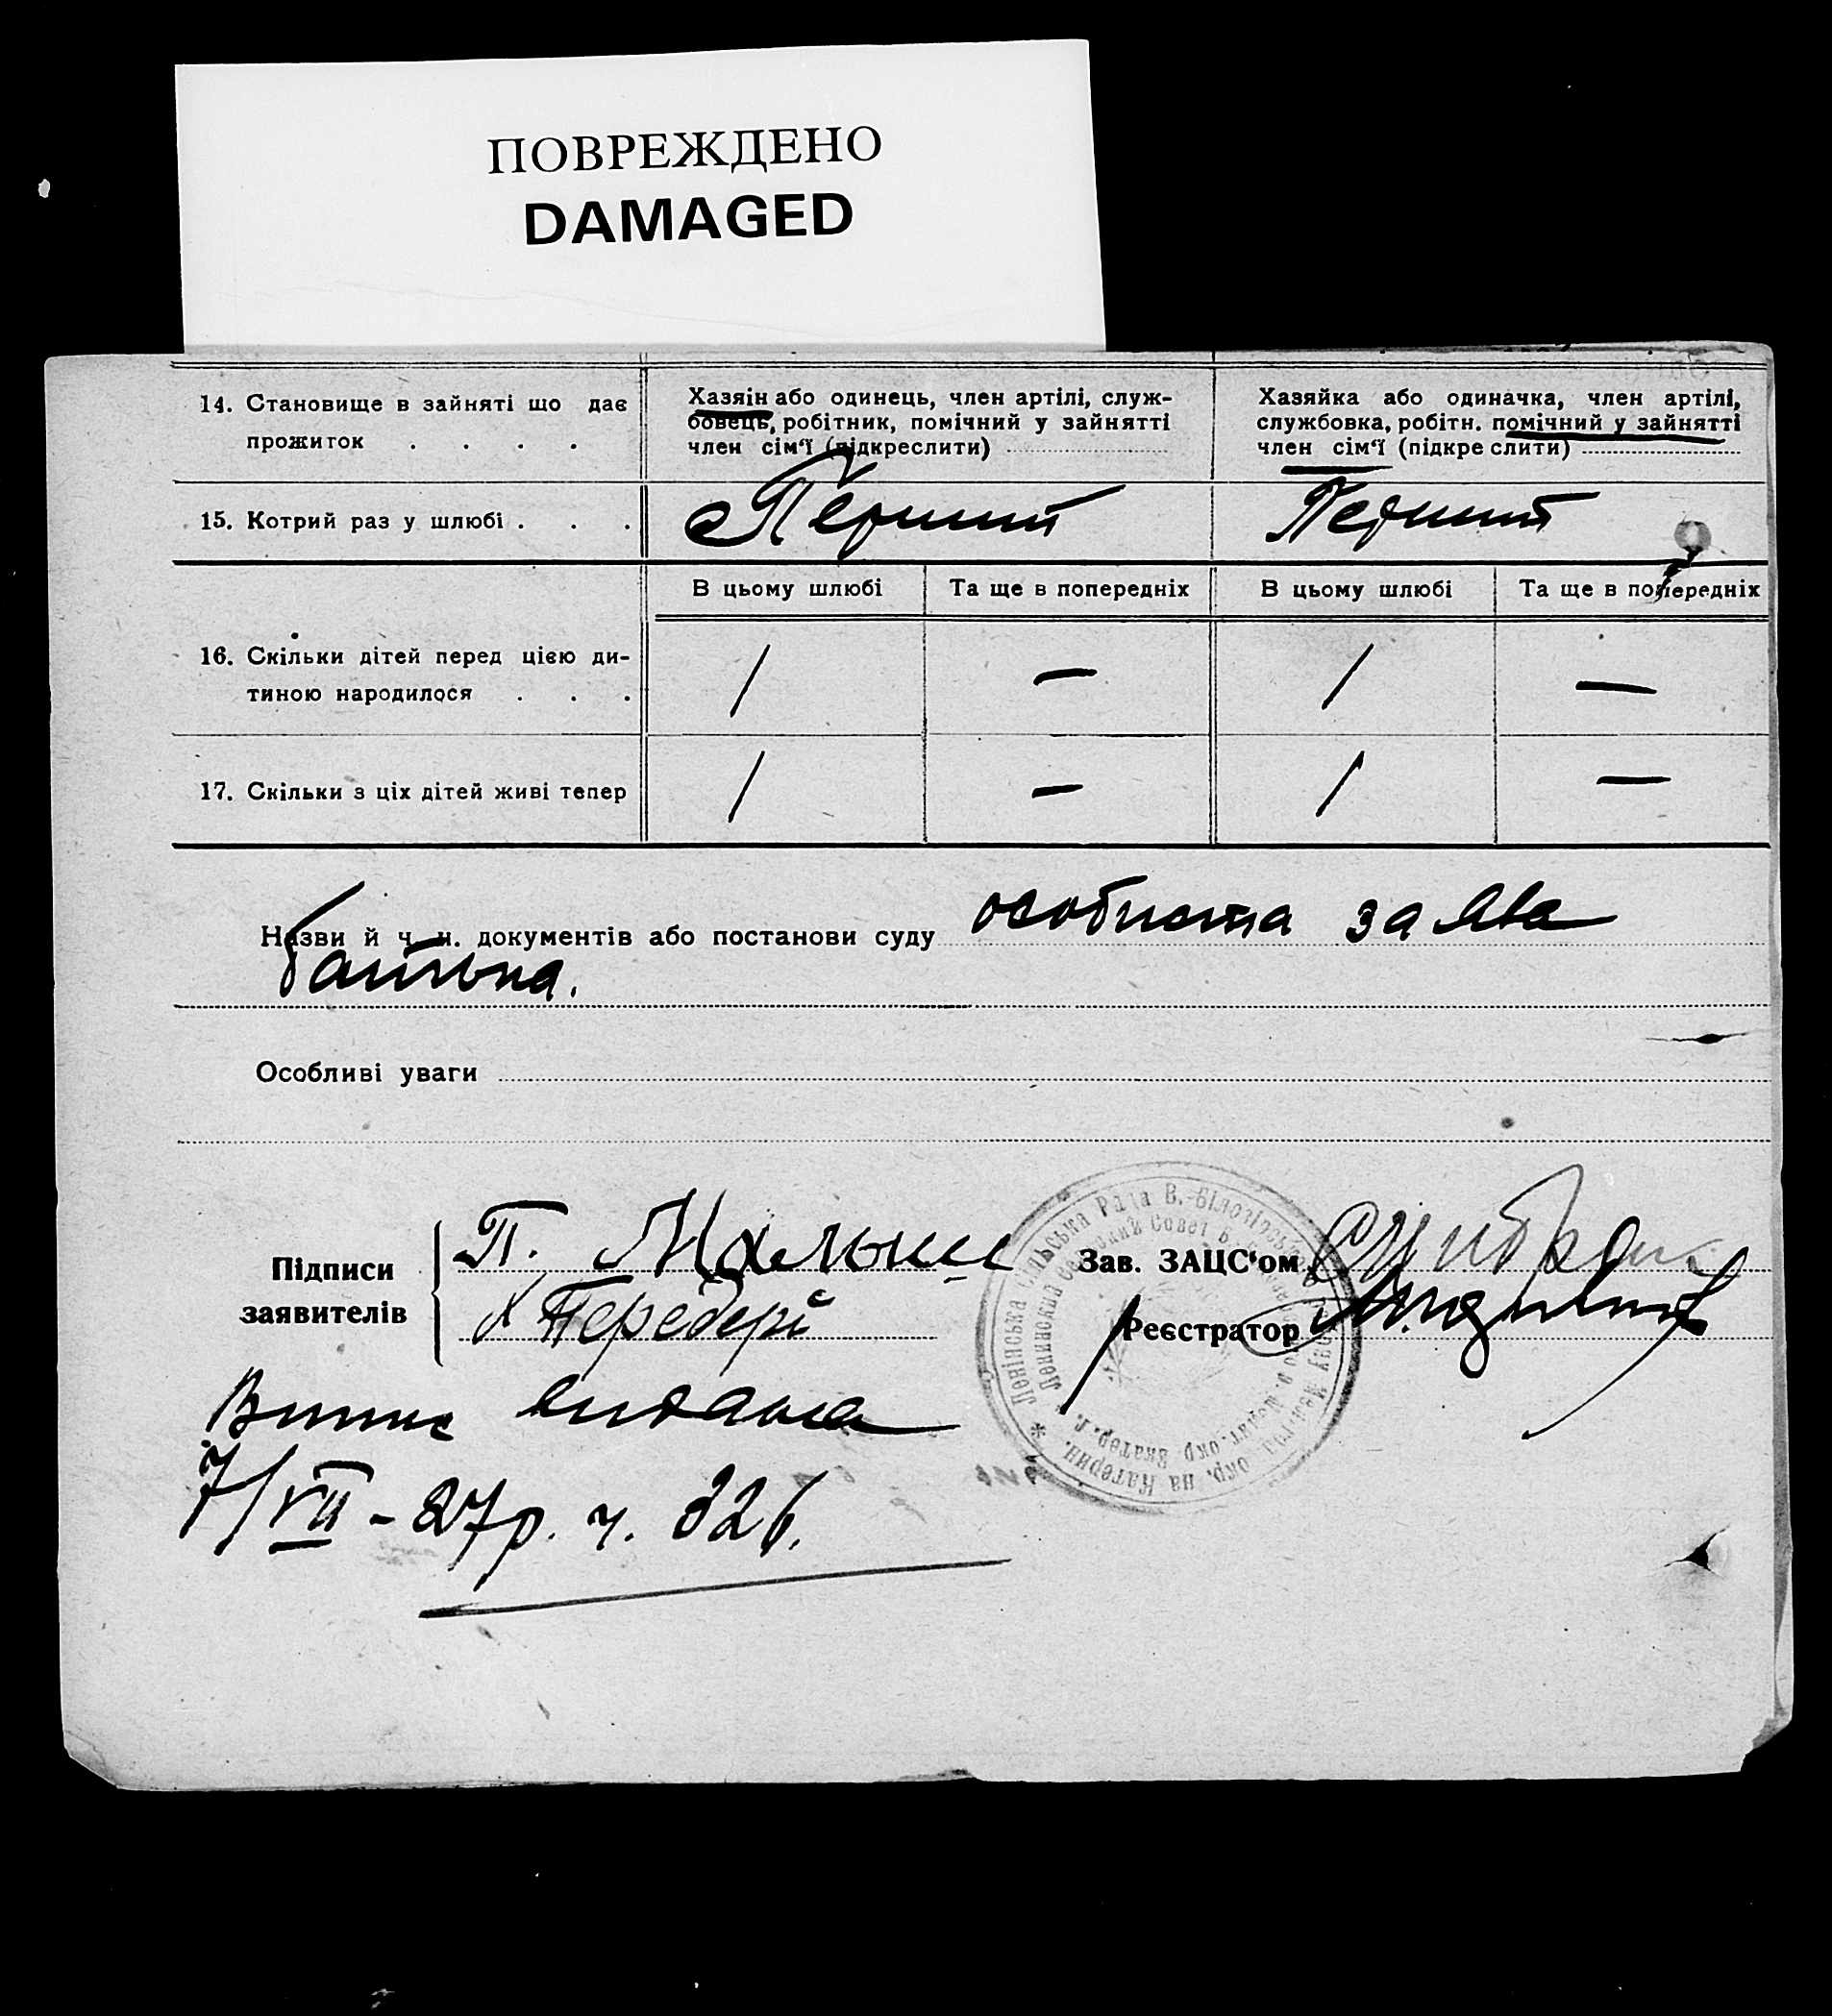 ПОВРЕЖДЕНО
DAMAGED
14. Становище в зайняті що дає прожиток . . . .
Хазяїн або одинець, член артілі, служ-
бовець, робітник, помічний у зайнятті
член сім'ї (підкреслити)
Хазяйка або одиначка, член артілі,
службовка, робітн. помічний у зайнятті
член сім'ї (підкреслити)
15. Котрий раз у шлюбі . . .
Перший
Перший
В цьому шлюбі
Та ще в попередніх
В цьому шлюбі
Та ще в попередніх
16. Скільки дітей перед цією ди-
тиною народилося . . .
/ — / —
17. Скільки з ціх дітей живі тепер
/ — / —
Назви й ч. н. документів або постанови суду особиста заява
батька.
Особливі уваги
Підписи
заявителів
П. Малыш
Передері
Зав. ЗАЦС'ом
Реєстратор
Ленінська Сільська Рада В.-Білозірськ
Випис видана
7/VII - 27 р. ч. 326.